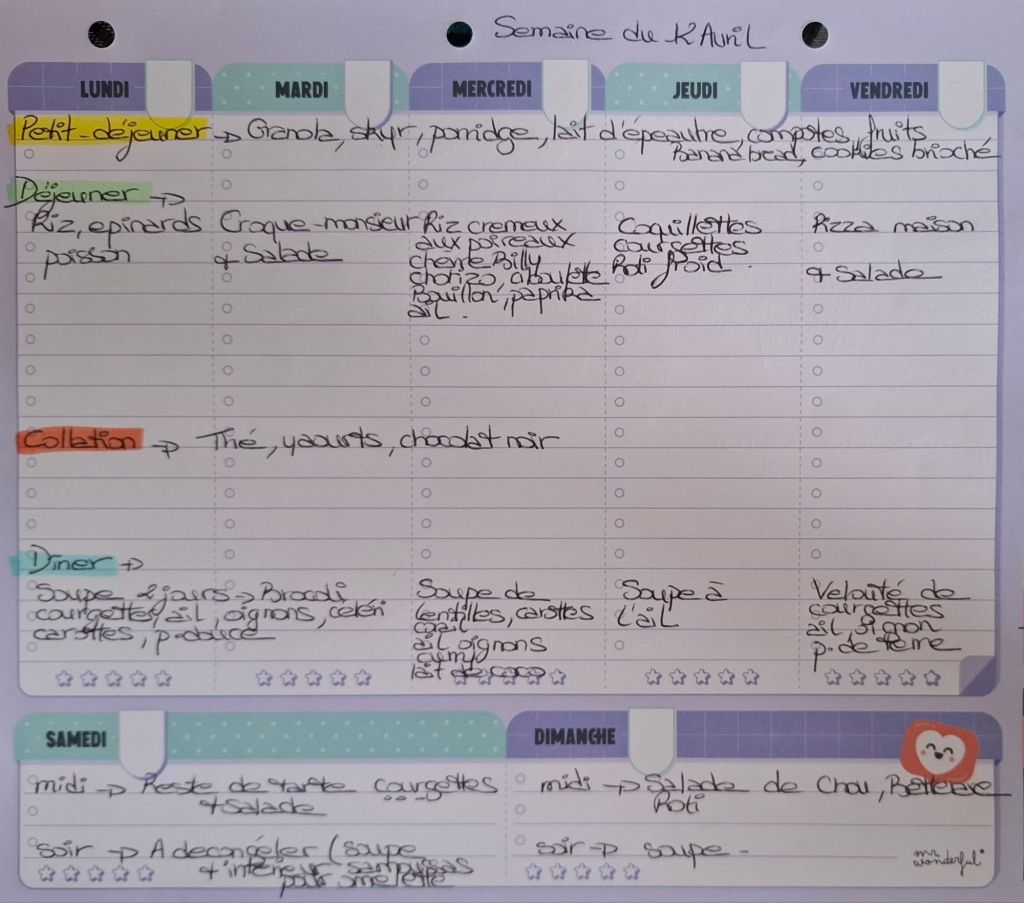 Semaine du Avril
LUNDI MARDI MERCREDI JEUDI VENDREDI
Petit-déjeuner → Granola, skyr, porridge, lait d'épeautre, compotes, fruits
Banana bread, cookies brioché
Déjeuner →
Riz, epinards
poisson
Croque-monsieur
+ Salade
Riz cremeux
aux poireaux
chèvre Billy
chorizo, ciboulette
Bouillon, paprika
ail.
Coquillettes
courgettes
Roti froid.
Pizza maison
+ Salade
Collation → Thé, yaourts, chocolat noir
Diner →
Soupe 2 jours → Brocoli
courgettes, ail, oignons, celéri
carottes, p. douce
Soupe de
lentilles, carottes
corail
ail oignons
cumin
lait de coco
Soupe à
l'ail
Velouté de
courgettes
ail, oignon
p. de terre
SAMEDI
midi → Reste de tarte courgettes
+ Salade
soir → A decongeler (soupe
+ intérieur samoussas
pour omelette
DIMANCHE
midi → Salade de Chou, Betterave
Roti
soir → soupe -
mr wonderful*